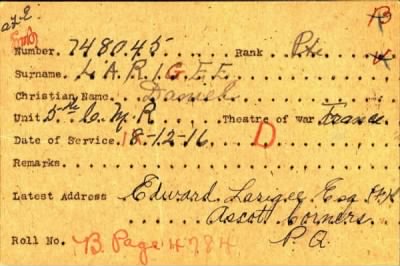 a/c 2
B
Number. 748045 Rank Pte
Surname. LARIGEE
Christian Name. Daniel
Unit 5th C.M.R. Theatre of war France
Date of Service. 18-12-16 D
Remarks
Latest Address Edward Larigee Esq
Ascott Corners.
Roll No. B. Page 4784 P.Q.